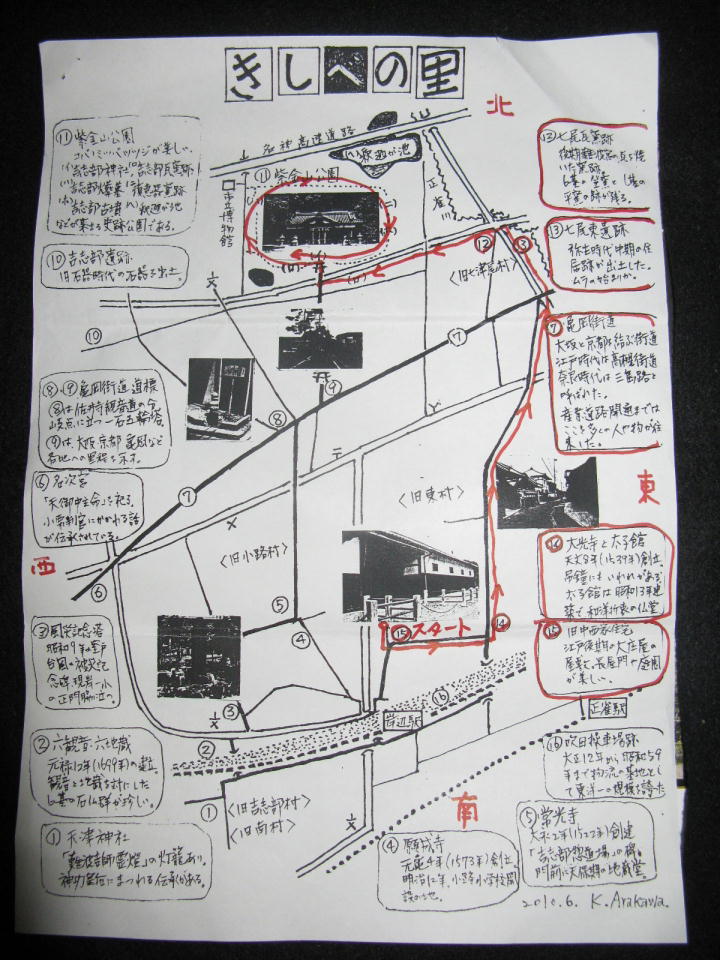 きしべの里
北
名神高速道路
(ハ)釈迦が池
⑪紫金山公園
市立博物館
正雀川
(ニ)
(ロ)
(イ)
⑫
⑬
〈旧七尾村〉
⑪紫金山公園
コバノミツバツツジが美しい。
などが集まる史跡公園である。
⑩吉志部遺跡
旧石器時代の石器を出土。
⑩
⑧、⑨亀岡街道道標
⑧は佐井寺観音道の分
岐点に立つ一石五輪塔。
⑨は、大阪京都亀岡など
各地への里程を示す。
⑥名次宮
「天御中主命」を祀る。
小栗判官にかかわる話
が伝承されている。
西
③風災記念塔
昭和9年の室戸
台風の被災記
念碑、現岸一小
の正門脇に立つ。
②六観音・六地蔵
元禄12年(1699年)の建立。
観音と地蔵を対にした
6基の石仏群が珍しい。
①天津神社
の灯籠あり。
にまつわる伝承がある。
⑬七尾瓦窯跡
後期難波宮の瓦を焼
いた窯跡。
6基の登窯と1基の
平窯の跡が残る。
⑬七尾東遺跡
弥生時代中期の住
居跡が出土した。
ムラの始まりか。
⑦亀岡街道
大阪と京都を結ぶ街道
江戸時代は高槻街道
奈良時代は三島路と
呼ばれた。
産業道路開通までは
ここを多くの人や物が往
来した。
東
⑭大光寺と太子館
天文8年(1539年)創立。
吊鐘にもいわれがある。
太子館は昭和13年建
築で和洋折衷の仏堂
⑮旧中西家住宅
江戸後期の大庄屋の
屋敷。長屋門や庭園
が美しい。
正雀駅
⑯吹田操車場跡
大正12年から昭和59
年まで物流の基地とし
て東洋一の規模を誇った
⑤常光寺
大永2年(1522年)創建
「吉志部惣道場」の機
門前に天保期の地蔵堂。
④願成寺
元亀4年(1573年)創立
明治12年、小路小学校開
設の地。
⑦
⑨
⑧
⑦
〈旧東村〉
〈旧小路村〉
⑥
⑤
④
⑮スタート
⑭
③
②
⑯
岸辺駅
①
〈旧吉志部村〉
〈旧南村〉
南
2010.6. K.Arakawa.